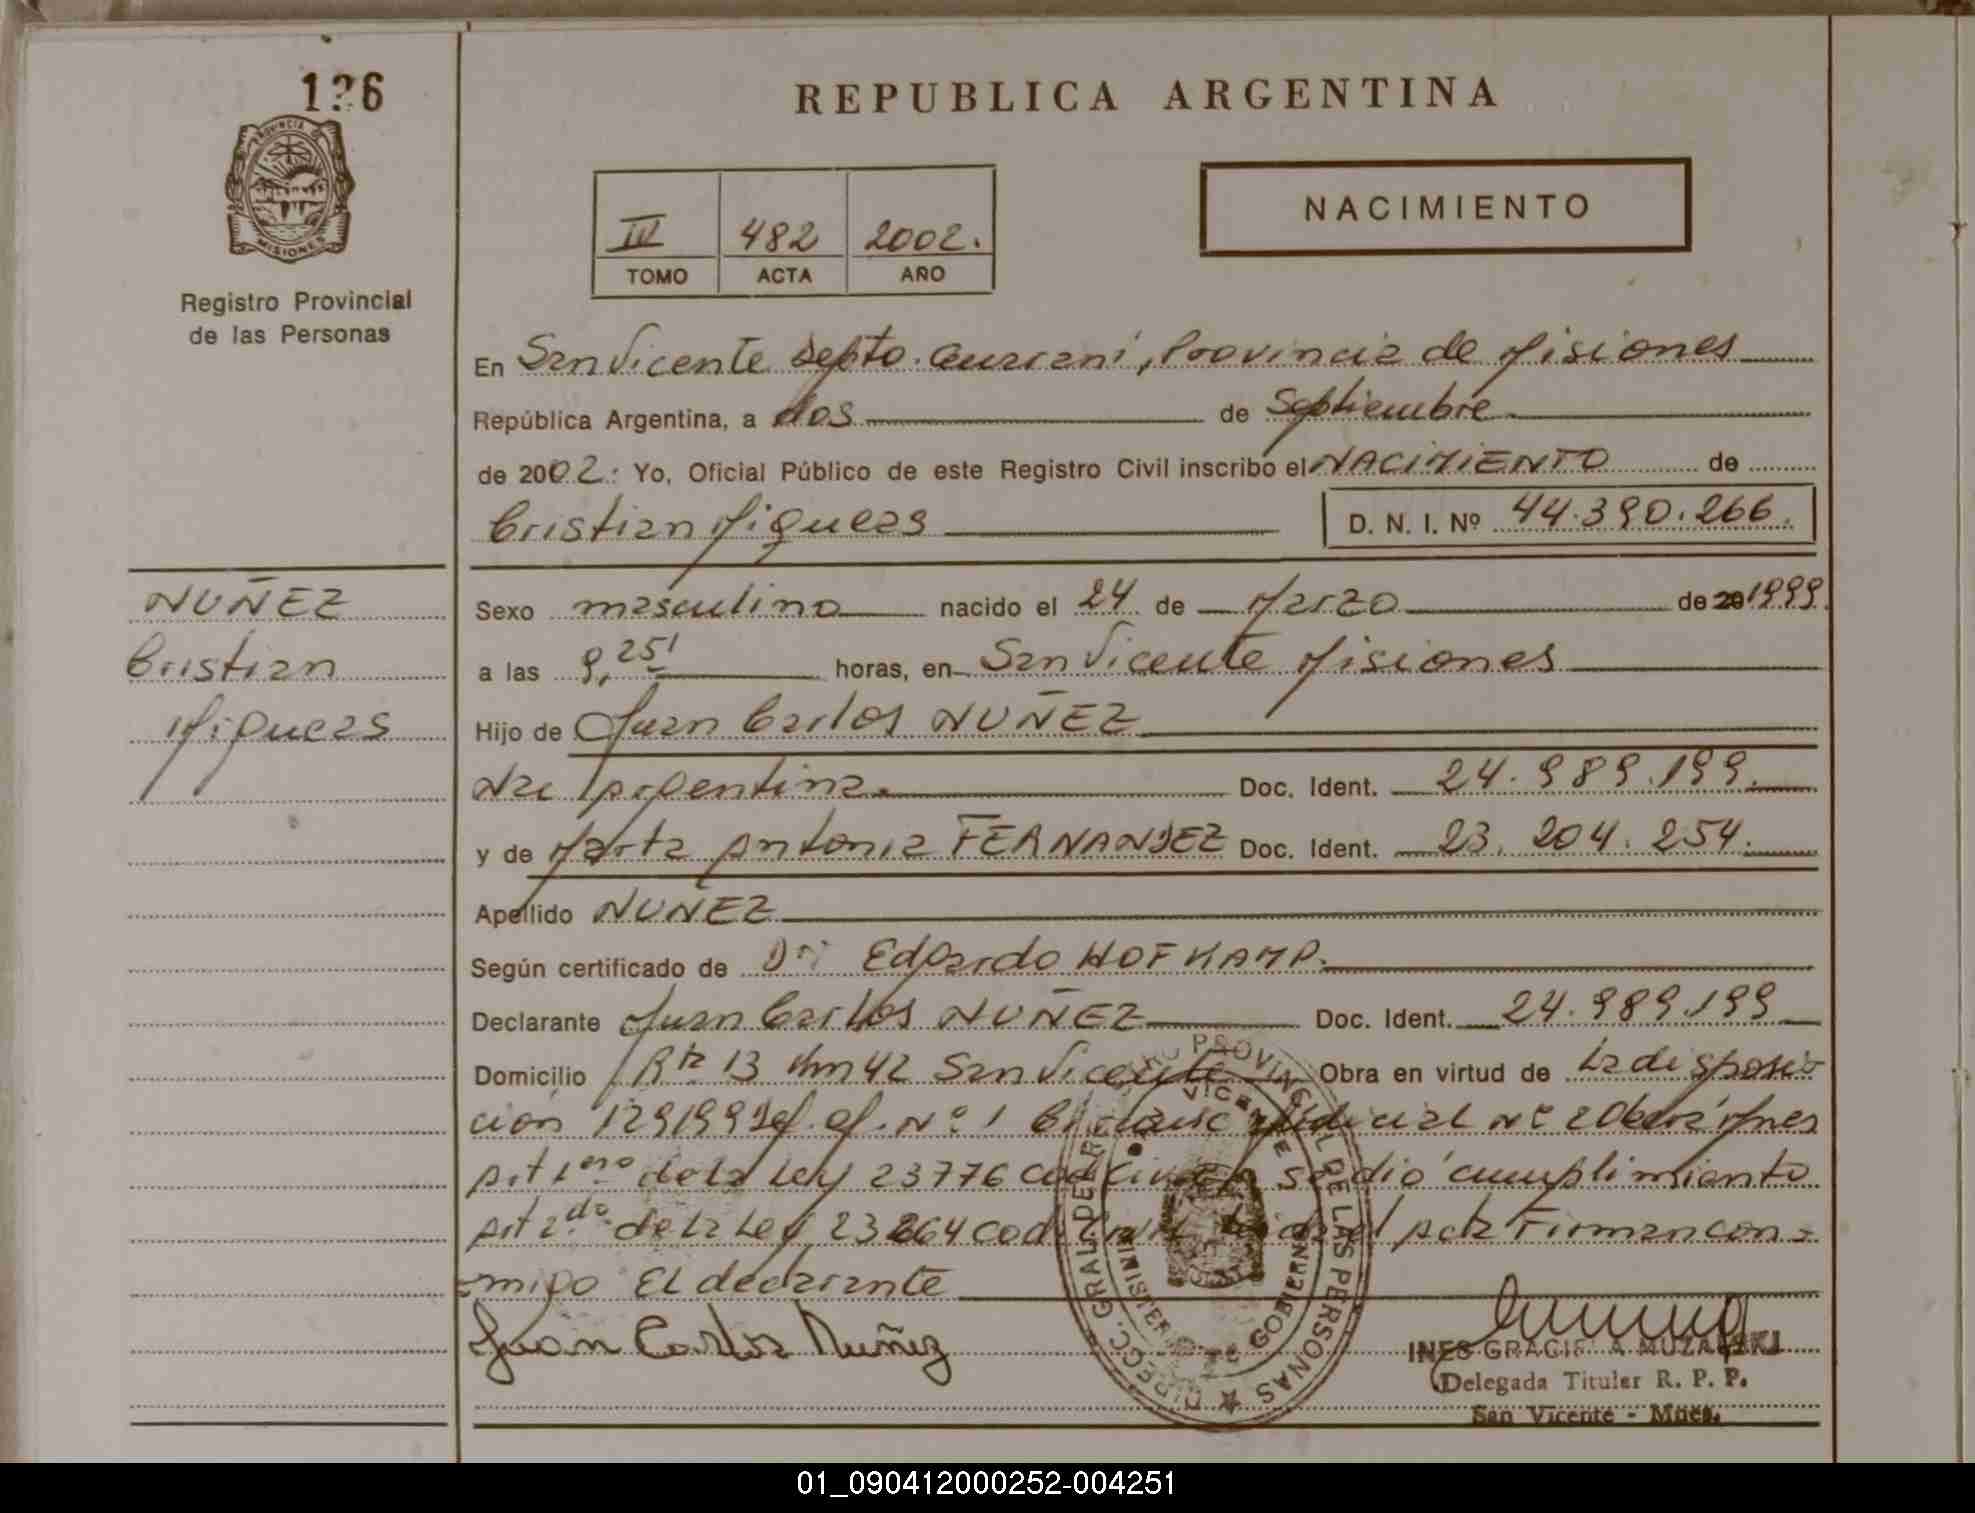 126
PROVINCIA DE
MISIONES
Registro Provincial
de las Personas
REPUBLICA ARGENTINA
III 482 2002.
TOMO ACTA AÑO
NACIMIENTO
En San Vicente Depto. Guaraní, Provincia de Misiones
República Argentina, a dos de Septiembre
de 2002: Yo, Oficial Público de este Registro Civil inscribo el NACIMIENTO de
Cristian Miqueas
D. N. I. Nº 44.390.266.
NUÑEZ
Cristian
Miqueas
Sexo masculino nacido el 24 de Marzo de 20 1999.
a las 9,25' horas, en San Vicente Misiones
Hijo de Juan Carlos NUÑEZ
Nac Argentina. Doc. Ident. 24.989.199.
y de Marta Antonia FERNANDEZ Doc. Ident. 23.204.254.
Apellido NUÑEZ
Según certificado de Dr. Edgardo HOFKAMP.
Declarante Juan Carlos NUÑEZ Doc. Ident. 24.989.199
Domicilio Rta 13 Km 42 San Vicente Obra en virtud de La disposi-
ción Nº 1 Judicial Nº 2 Oberá Mnes
Art 1ero de la Ley 23776 Cod Civil Se dió cumplimiento
Art 2do de la Ley 23264 Cod Civil Leida el Acta Firman con-
=migo El declarante
Juan Carlos Nuñez
DIRECC. GRAL. DEL REGISTRO PROVINCIAL DE LAS PERSONAS
VICENTE
MINISTERIO DE GOBIERNO
INES GRACIELA MUZALSKI
Delegada Titular R. P. P.
San Vicente - Mnes.
01_090412000252-004251